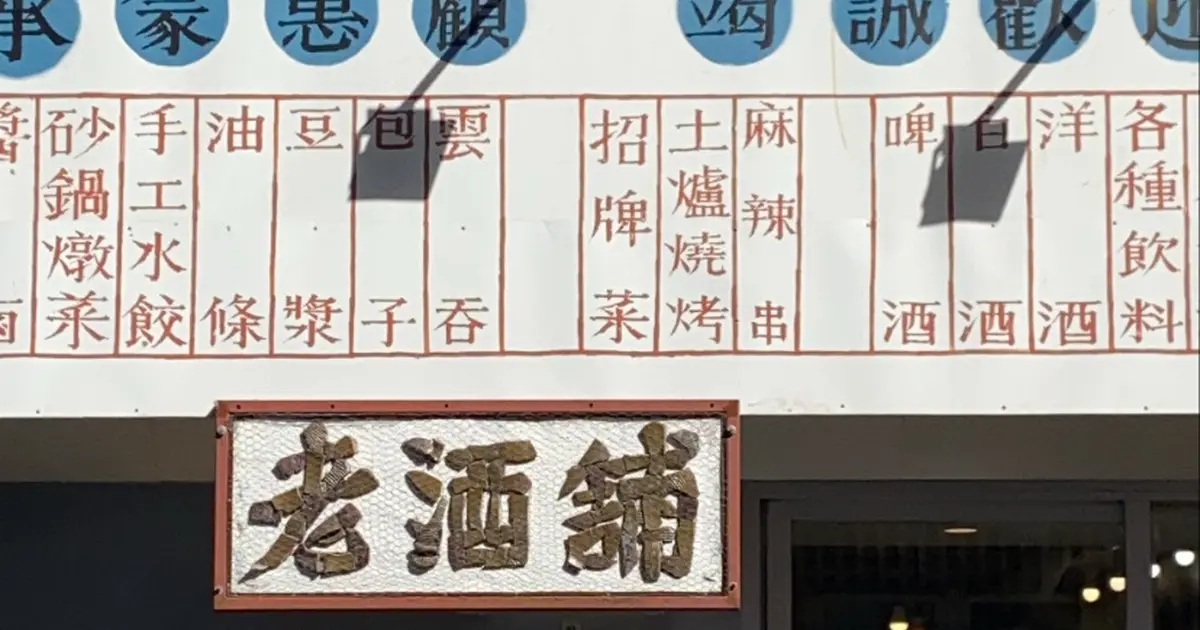 承蒙惠顧 竭誠歡迎
砂鍋燉菜
手工水餃
油條
豆漿
包子
雲吞
招牌菜
土爐燒烤
麻辣串
啤酒
白酒
洋酒
各種飲料
老酒舖